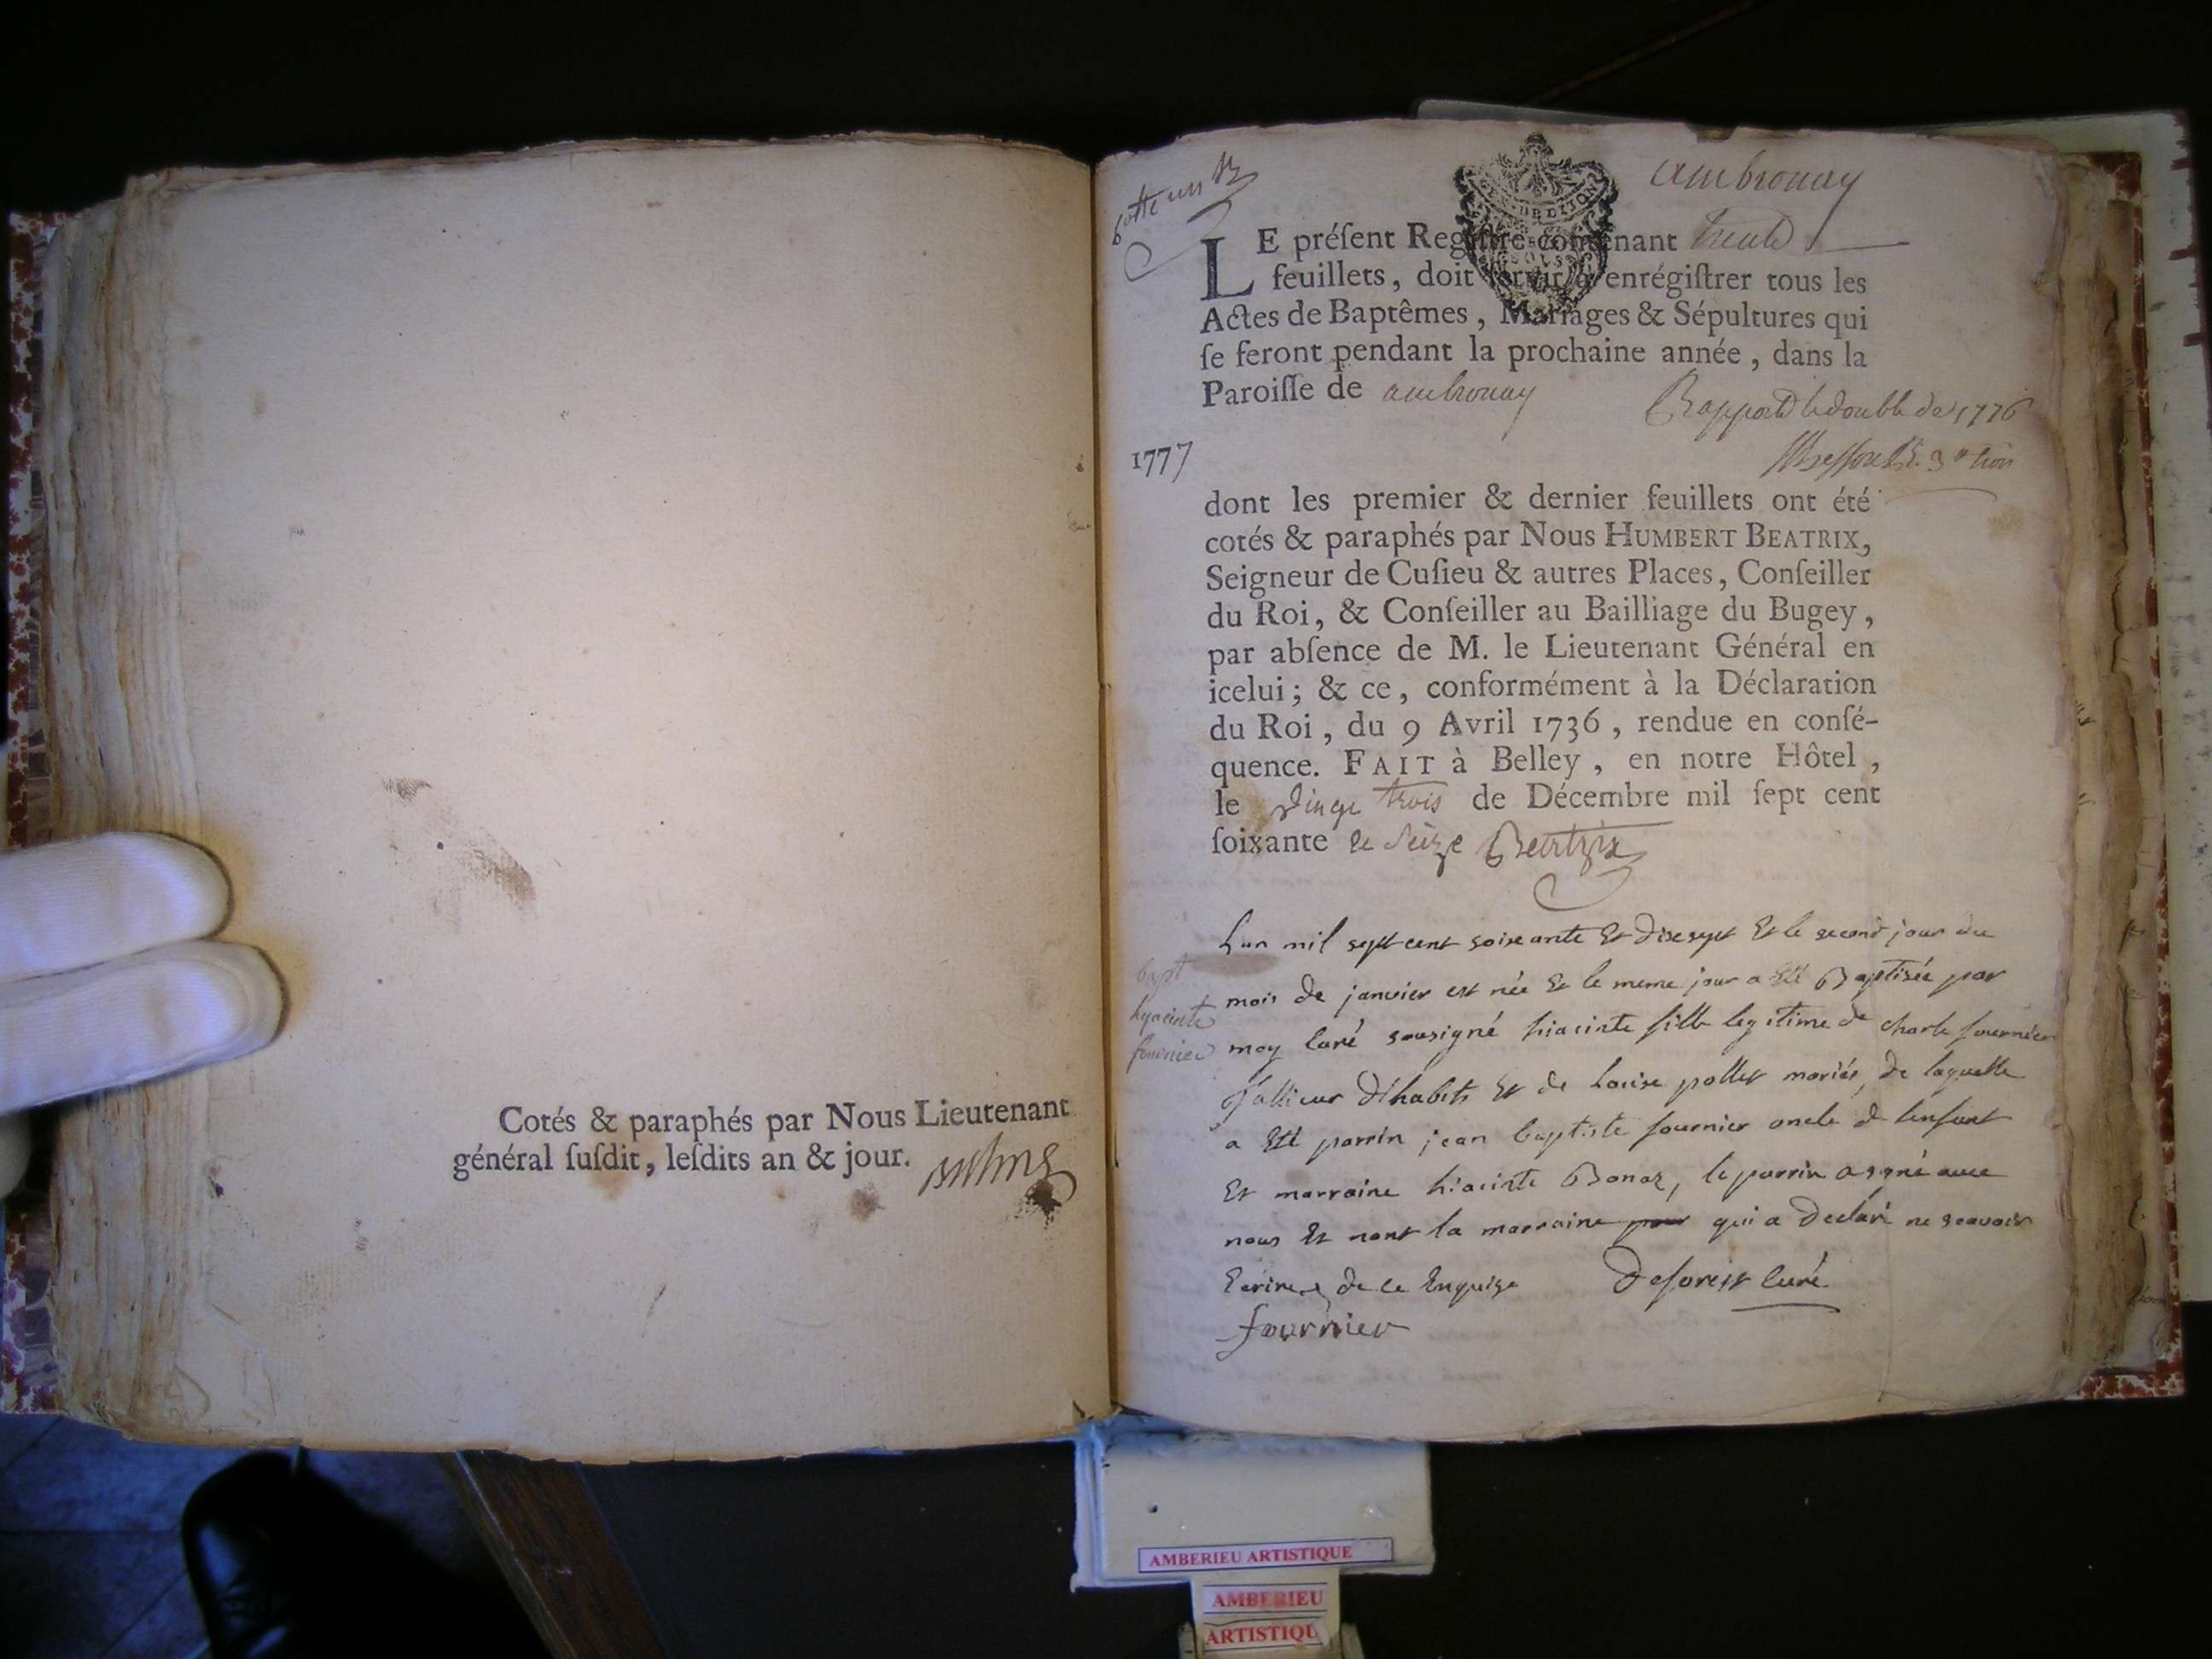 Cotés & paraphés par Nous Lieutenant
général ſuſdit, leſdits an & jour.
cotte un
ambronay
LE préſent Regiſtre contenant trente
feuillets, doit ſervir à enrégiſtrer tous les
Actes de Baptêmes, Mariages & Sépultures qui
ſe feront pendant la prochaine année, dans la
Paroiſſe de ambronay
Rapporté le double de 1776
1777
dont les premier & dernier feuillets ont été
cotés & paraphés par Nous HUMBERT BEATRIX,
Seigneur de Cuſieu & autres Places, Conſeiller
du Roi, & Conſeiller au Bailliage du Bugey,
par abſence de M. le Lieutenant Général en
icelui; & ce, conformément à la Déclaration
du Roi, du 9 Avril 1736, rendue en conſé-
quence. FAIT à Belley, en notre Hôtel,
le vingt trois de Décembre mil ſept cent
ſoixante et seize Beatrix
bapt
hyacinte
fournier
L'an mil sept cent soixante Et dixsept Et le second jour du
mois de janvier est née Et le meme jour a Eté Baptisée par
moy Curé sousigné hiacinte fille legitime de charle fournier
Tallieur d'habits Et de Louise pollet mariés, de laquelle
a Eté parrin jean baptiste fournier oncle de l'enfant
Et marraine hiacinte Bonaz, le parrin a signé avec
nous Et nont la marraine pour qui a declaré ne scavoir
Ecrire de ce Enquise Deforest Curé
fournier
AMBERIEU ARTISTIQUE
AMBERIEU
ARTISTIQU